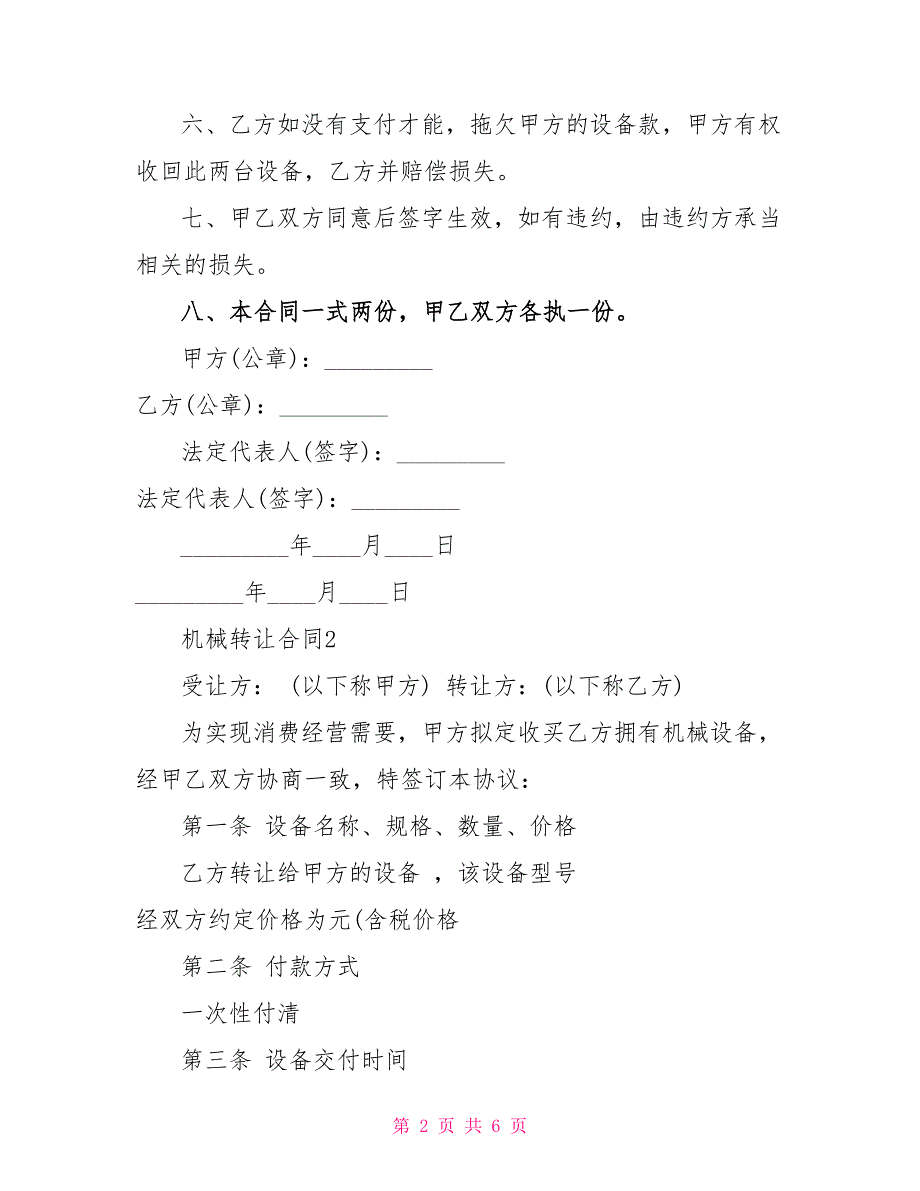 六、乙方如没有支付才能，拖欠甲方的设备款，甲方有权
收回此两台设备，乙方并赔偿损失。
七、甲乙双方同意后签字生效，如有违约，由违约方承当
相关的损失。
八、本合同一式两份，甲乙双方各执一份。
甲方(公章)：_________
乙方(公章)：_________
法定代表人(签字)：_________
法定代表人(签字)：_________
_________年____月____日
_________年____月____日
机械转让合同2
受让方： (以下称甲方) 转让方：(以下称乙方)
为实现消费经营需要，甲方拟定收买乙方拥有机械设备，
经甲乙双方协商一致，特签订本协议：
第一条 设备名称、规格、数量、价格
乙方转让给甲方的设备 ，该设备型号
经双方约定价格为元(含税价格
第二条 付款方式
一次性付清
第三条 设备交付时间
第 2 页 共 6 页